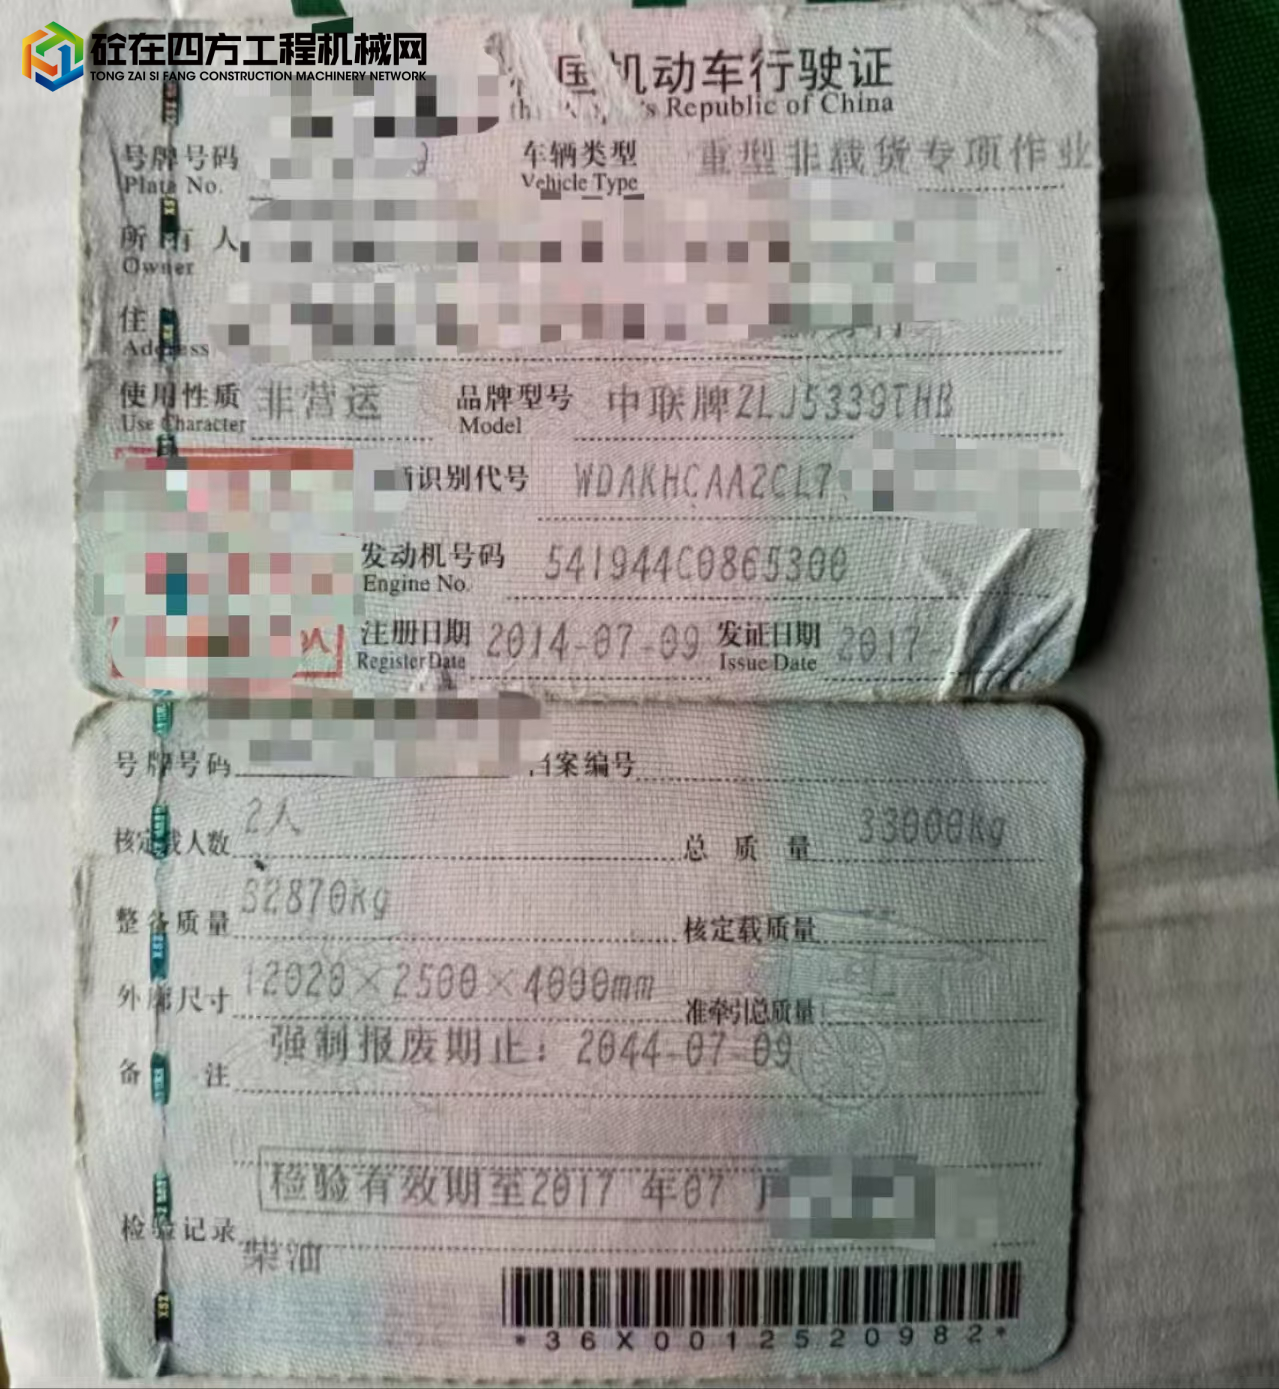 砼在四方工程机械网
TONG ZAI SI FANG CONSTRUCTION MACHINERY NETWORK
国机动车行驶证
Republic of China
号牌号码
Plate No.
车辆类型 重型非载货专项作业
Vehicle Type
所有人
Owner
住
Address
使用性质 非营运 品牌型号 中联牌ZLJ5339THB
Use Character Model
识别代号 WDAKHCAA2CL7
发动机号码 541944C0865300
Engine No.
注册日期 2014-07-09 发证日期 2017
Register Date Issue Date
号牌号码 档案编号
核定载人数 2人 总质量 33000kg
整备质量 32870kg 核定载质量
外廓尺寸 12020×2500×4000mm 准牵引总质量
备注 强制报废期止：2044-07-09
检验有效期至2017 年07
检验记录
柴油
*36X0012520982*